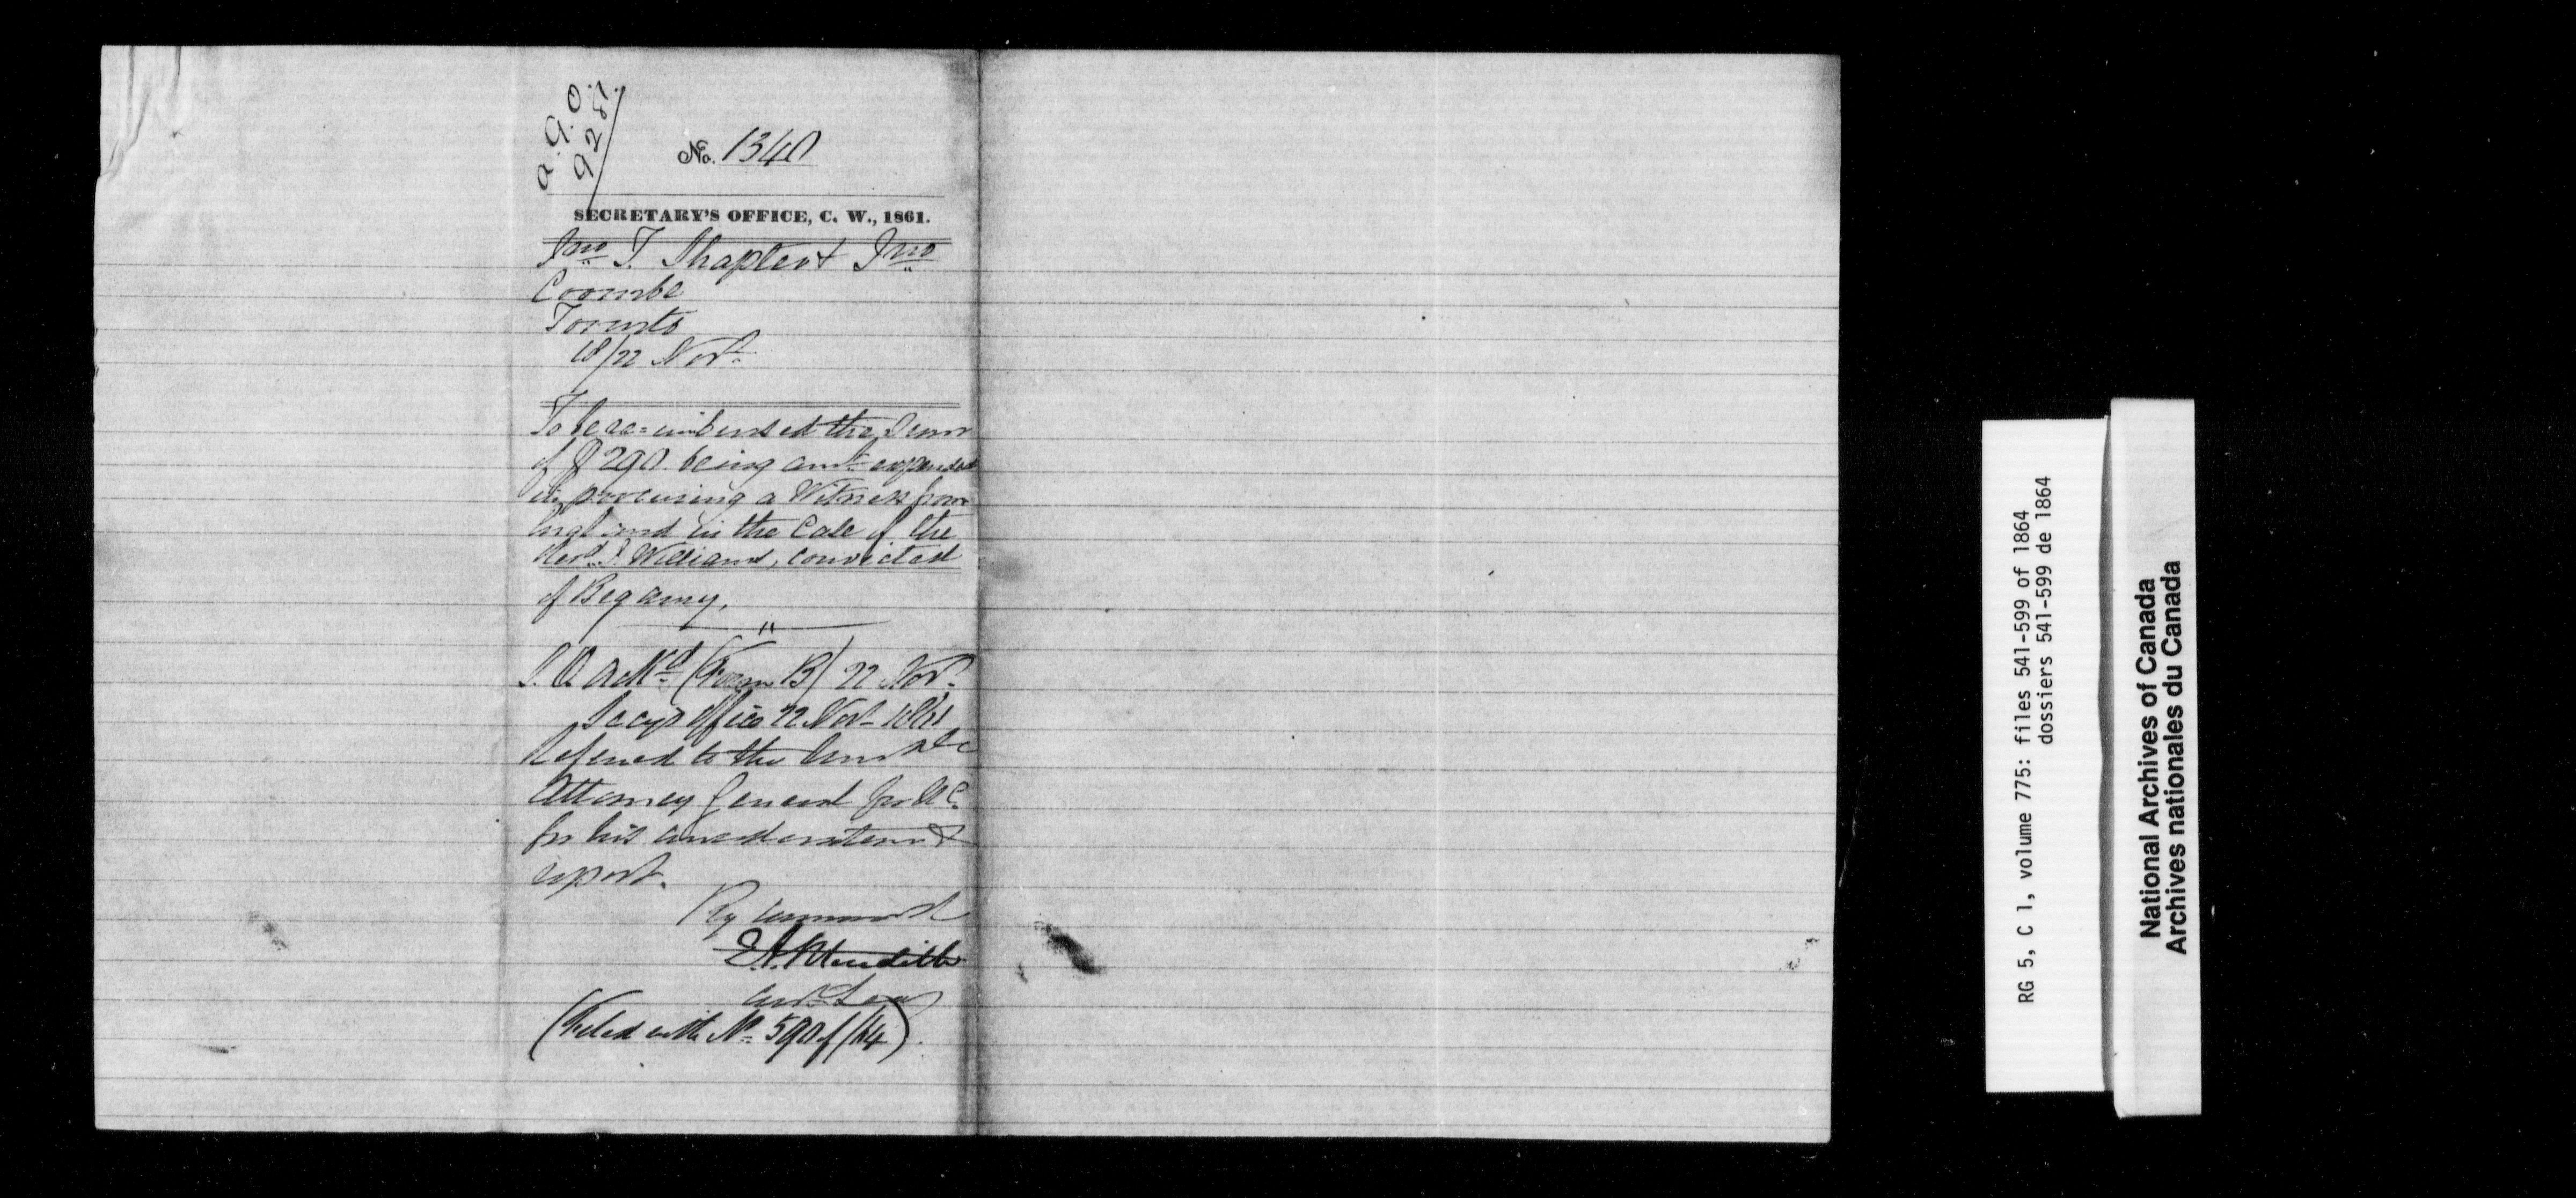 A.G.O.
928/
No. 1340
SECRETARY'S OFFICE, C. W., 1861.
Jno T. Shapter & Jno
Coombe
Toronto
18/22 Novr
To be re=imbursed the Sum
of $290. being amt expended
in procuring a Witness from
England in the Case of the
Revd J. Williams, convicted
of Bigamy.
"
Ackd (Form B) 22 Novr
Secys Office 22 Novr 1861
Referred to the Honble
Attorney General for U.C.
for his consideration &
report.
By Command
E.A. Meredith
Asst Secy
(Filed with No 590 of /64).
RG 5, C 1, volume 775: files 541-599 of 1864
dossiers 541-599 de 1864
National Archives of Canada
Archives nationales du Canada